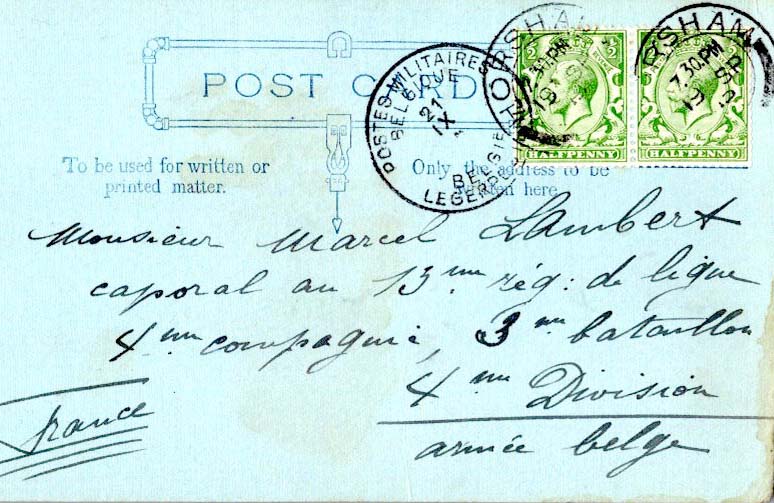 POST CARD
HORSHAM
7.30 PM
19 SP
HORSHAM
7.30 PM
19 SP
POSTES MILITAIRES
BELGIQUE
21
IX
BELGIE
LEGERPOST
HALFPENNY
HALFPENNY
To be used for written or
printed matter.
Only the address to be
written here.
Monsieur Marcel Lambert
caporal au 13me rég: de ligne
4me compagnie, 3me bataillon
4me Division
France
armée belge